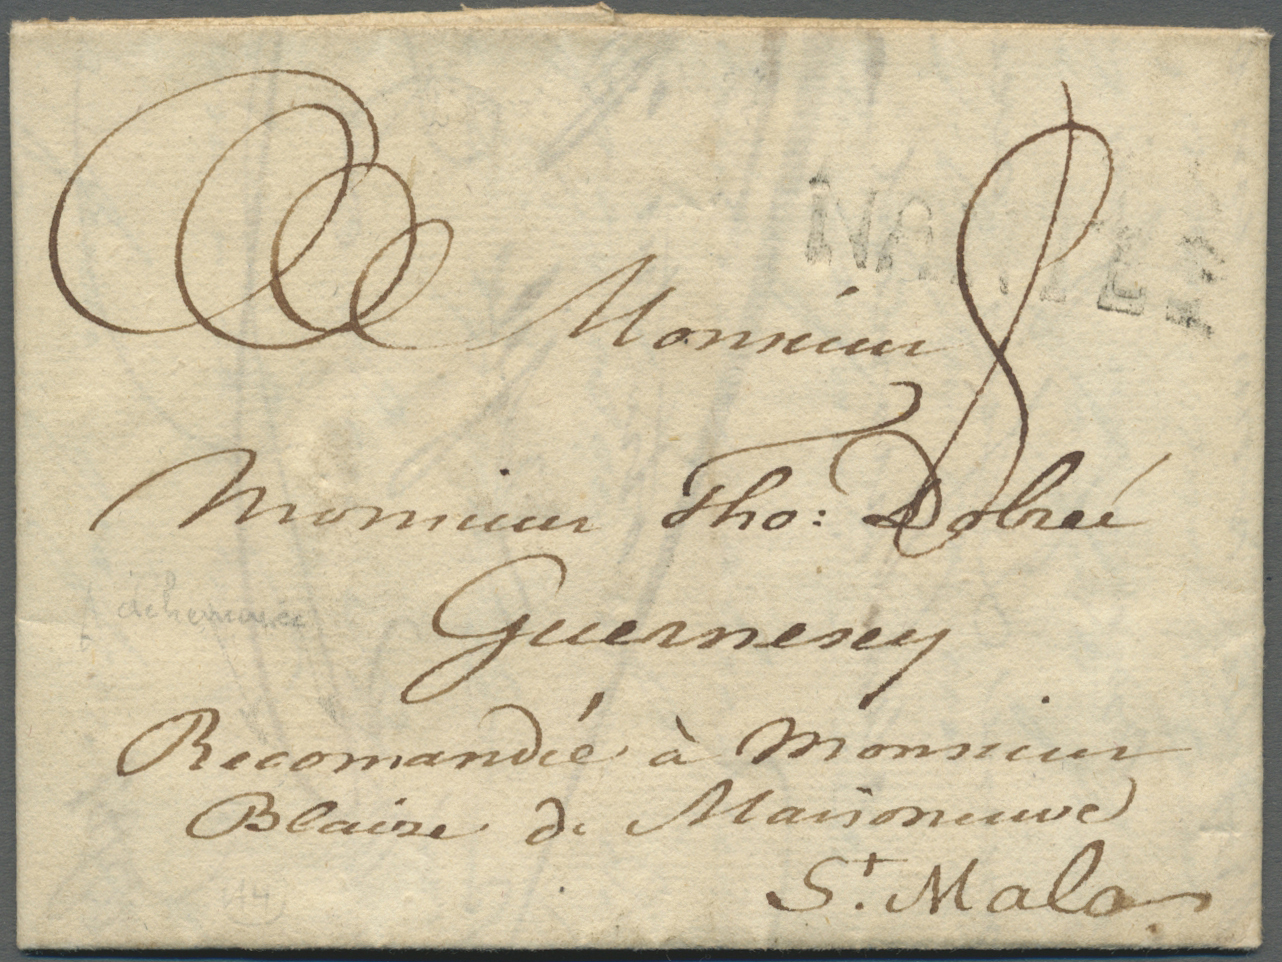 NANTES
8
Monsieur
Monsieur Tho: Dobreé
Guernesey
Recomandée à Monsieur
Blaize de Maisoneuve
St. Malo